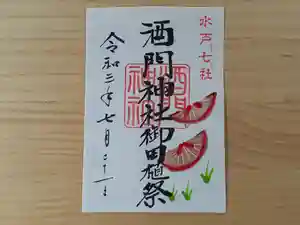 水戸七社
酒門神社御田植祭
令和三年七月二十一日